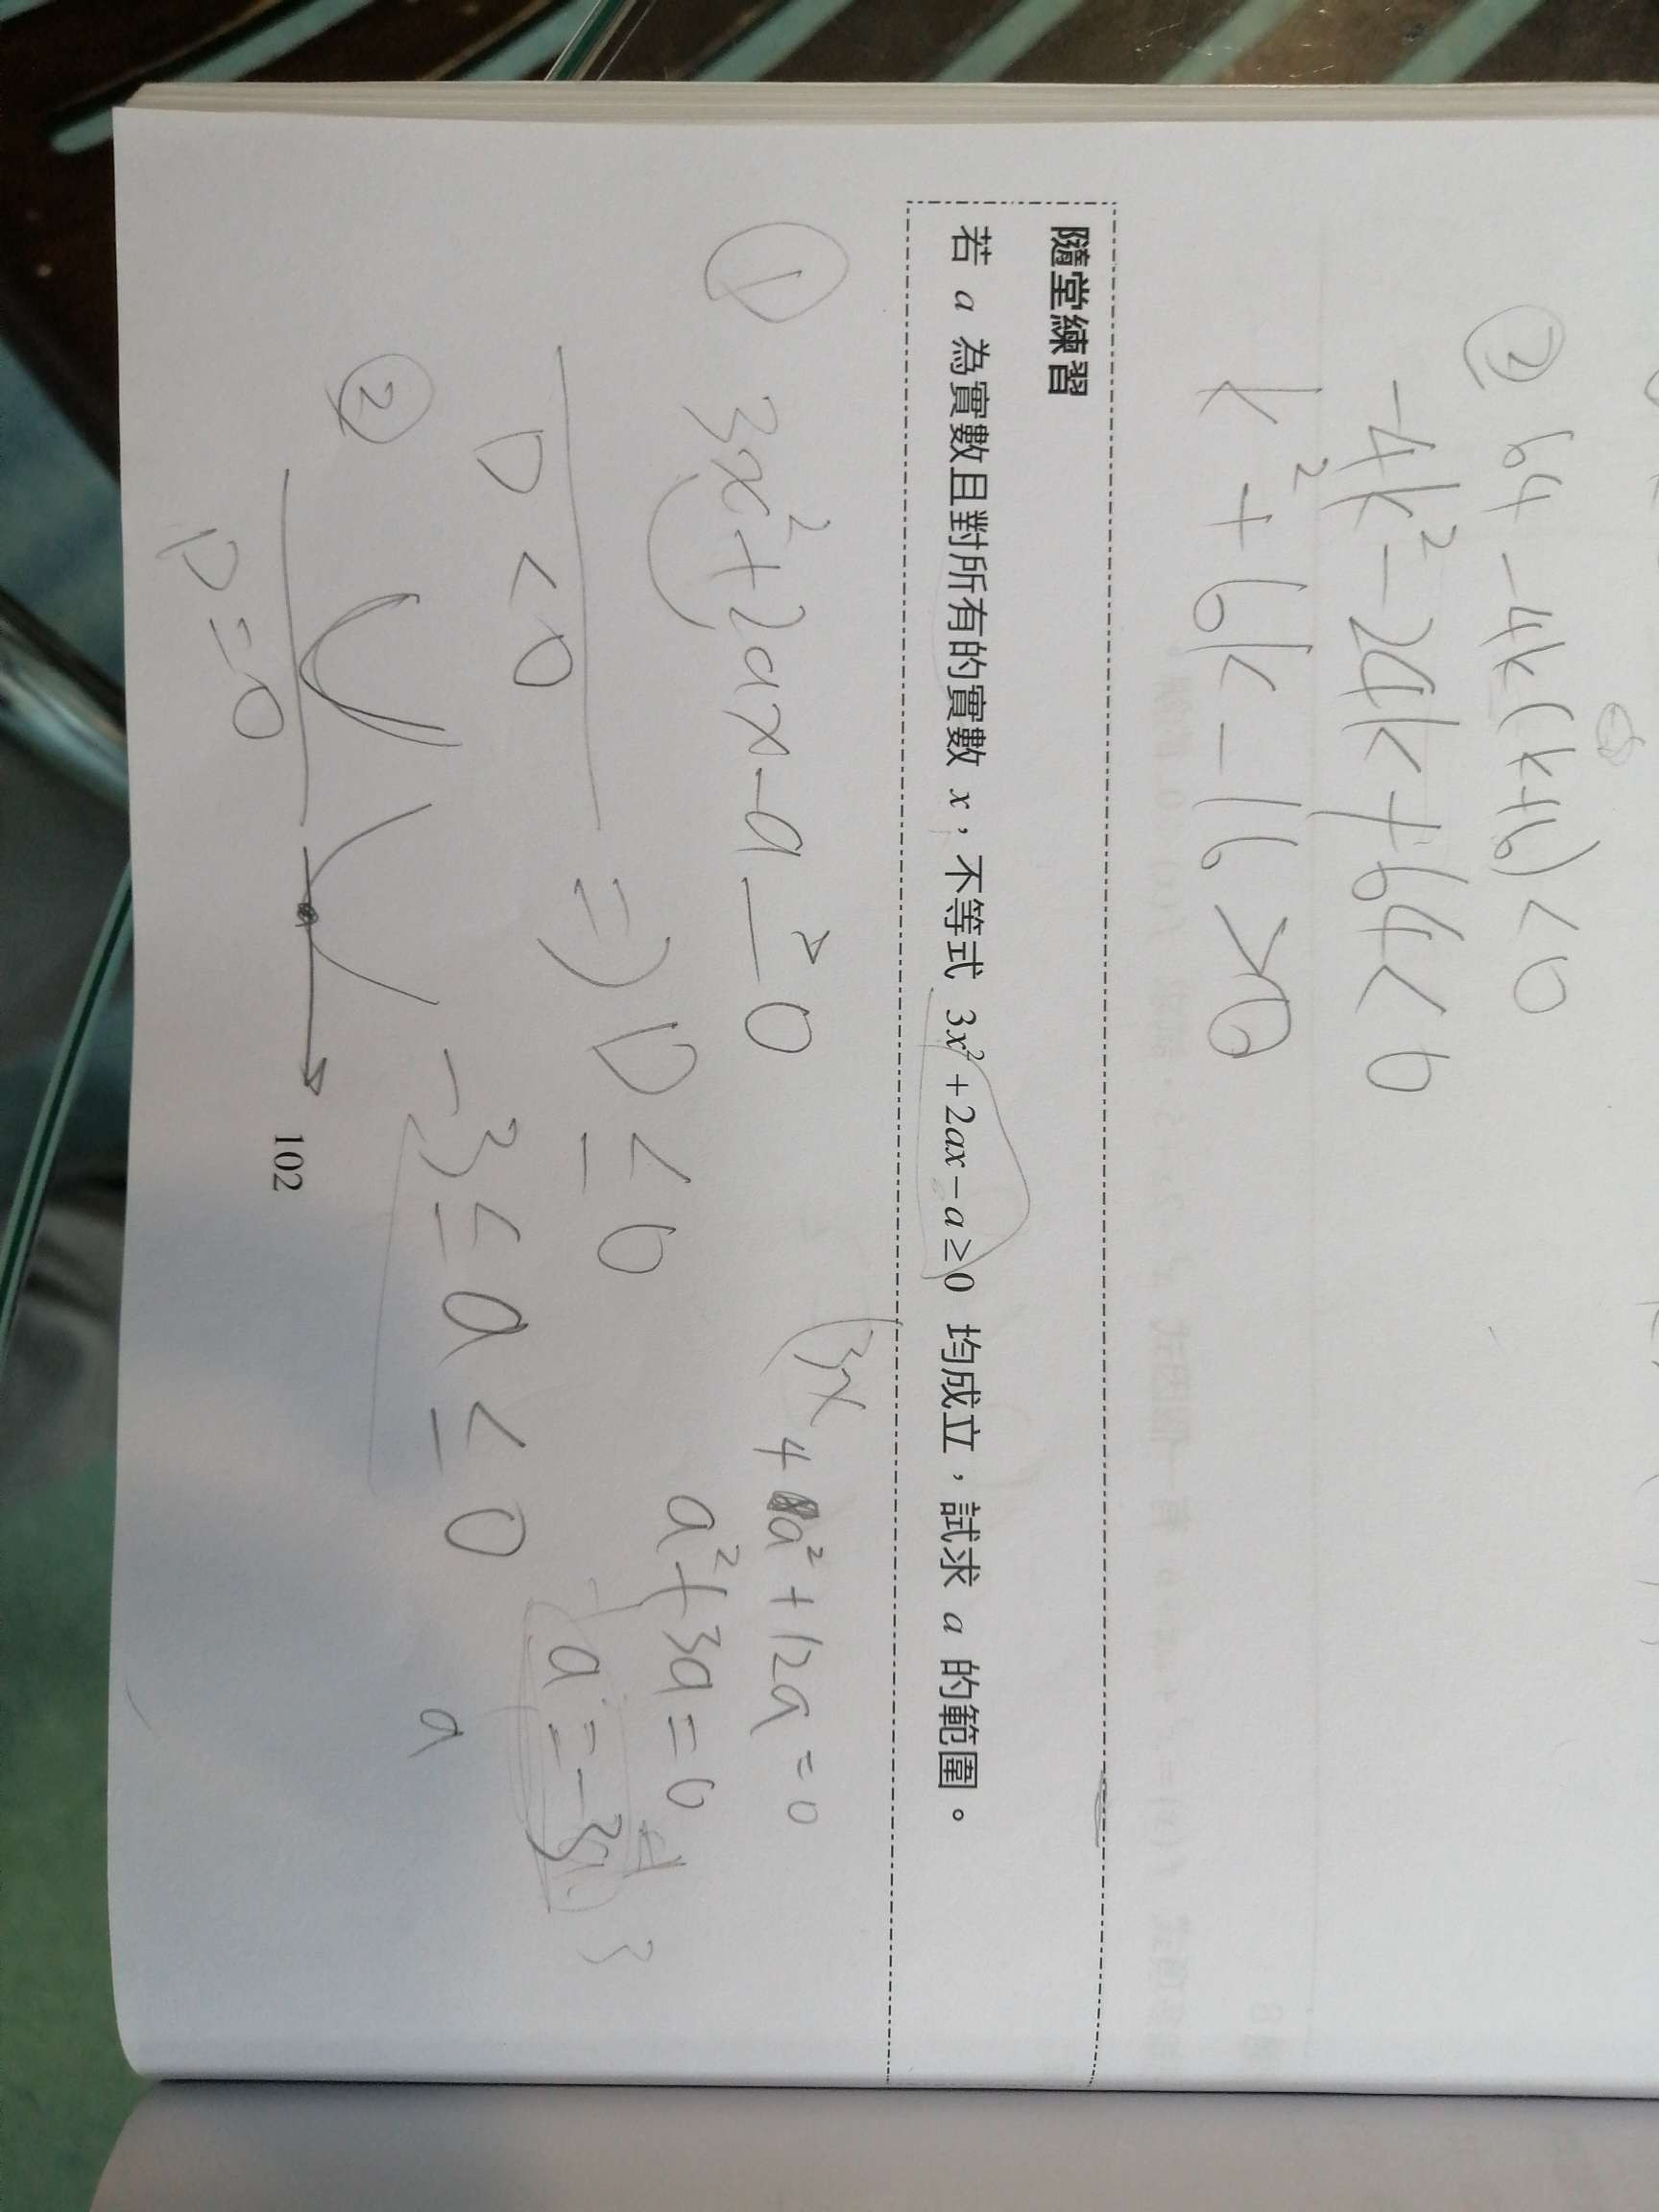 ② 64 - 4k(k+6) < 0
-4k² - 24k + 64 < 0
k² + 6k - 16 > 0
隨堂練習
若 a 為實數且對所有的實數 x，不等式 3x² + 2ax − a ≥ 0 均成立，試求 a 的範圍。
(3x
① 3x² + 2ax - a ≥ 0
4a² + 12a = 0
a² + 3a = 0
⇒ D ≤ 0
a = -3
D < 0
-3 ≤ a ≤ 0
a
②
D = 0
102